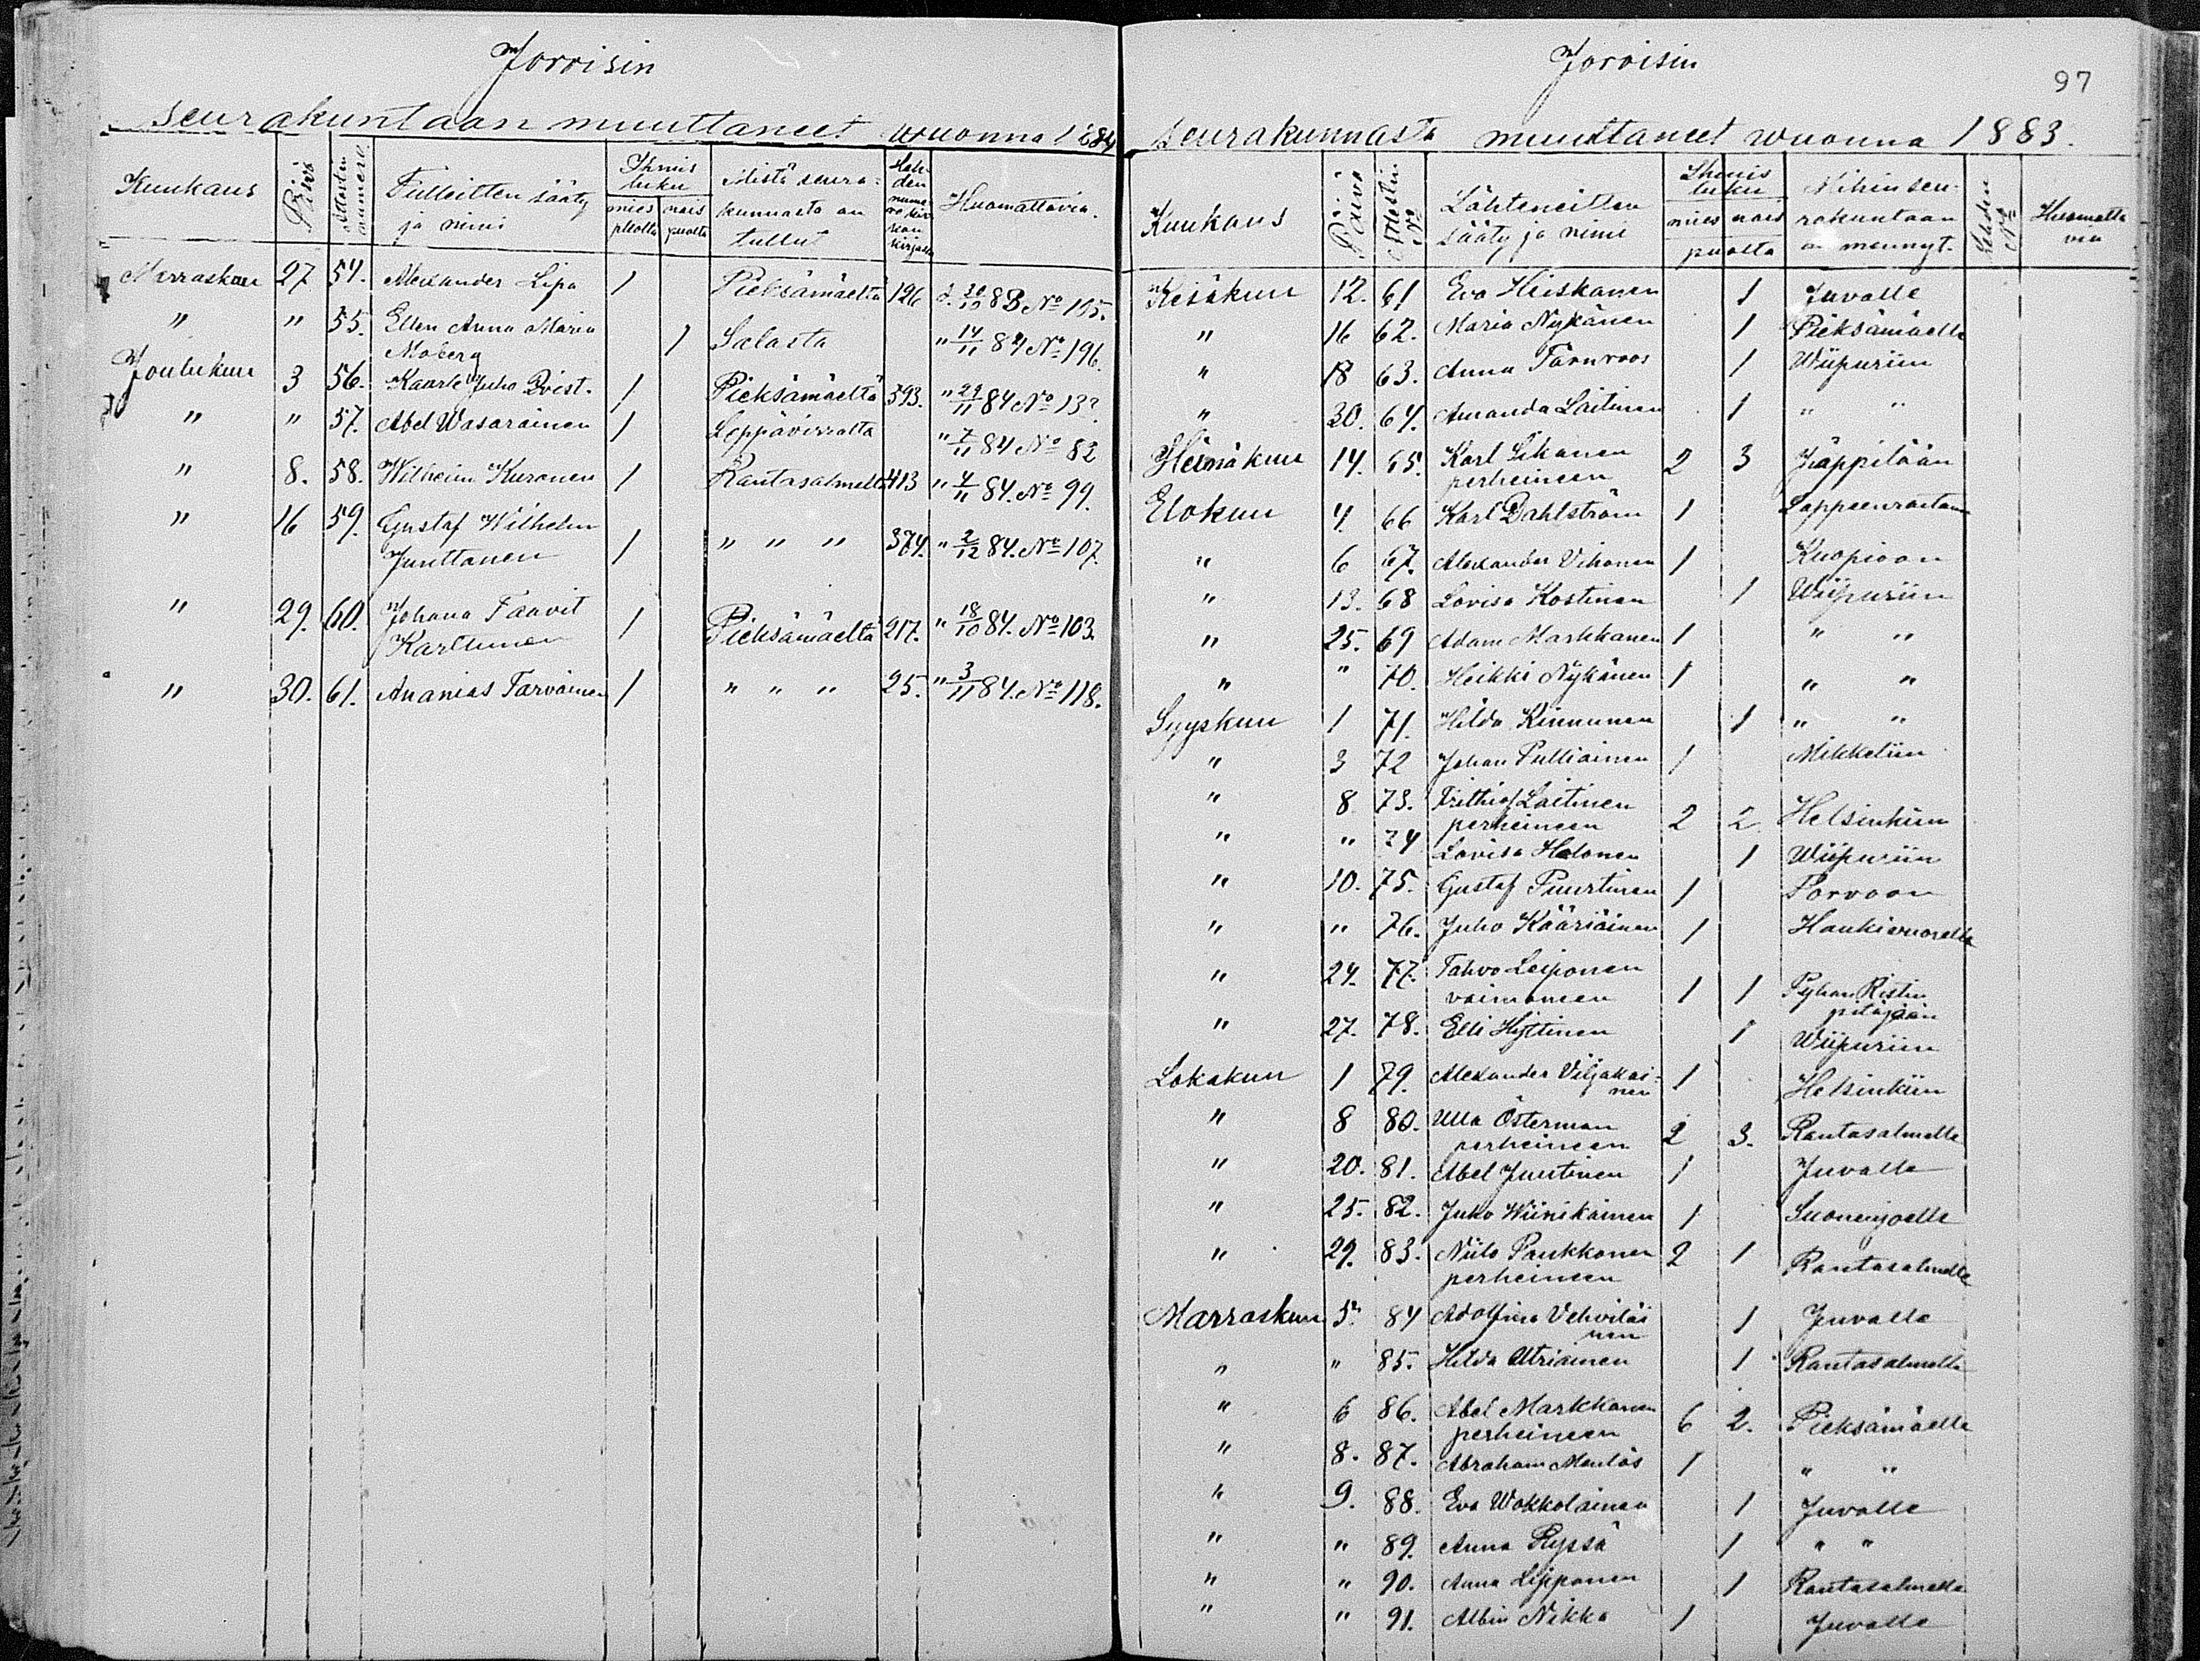 Joroisin
seurakuntaan muuttaneet wuonna 1884
Kuukaus Päiwä Attestin numero Tulleitten sääty ja nimi Ihmis luku mies puolta nais puolta Mistä seura-kunnasta on tullut Huomattavia.
Marraskuu 27 54. Alexander Lipa 1 Pieksämäeltä 126 30/10 83 No 105.
" " 55. Ellen Anna Maria
Moberg 1 Salasta " 14/11 84 No 196
Joulukuu 3 56. Kaarle Juho Qvist. 1 Pieksämäeltä 593. " 29/11 84 No 13?
" " 57. Abel Wasarainen 1 Leppävirralta " 7/11 84 No 82
" 8. 58. Wilhelm Kuronen 1 Rantasalmelta 413 " 4/11 84. No 99.
" 16 59. Gustaf Wilhelm
Junttanen 1 " " " 374. " 2/12 84. No 107.
" 29. 60. Johana Taavit
Karttunen 1 Pieksämäeltä 217. " 18/10 84. No 103.
" 30. 61. Ananias Tarvainen 1 " " " 25. " 3/11 84. No 118.
Joroisin
97
seurakunnasta muuttaneet wuonna 1883.
Kuukaus Päivä Attestin No Lähteneitten sääty ja nimi Ihmis luku mies nais puolta Mihin seu-rakuntaan on mennyt. Huomatta via
Kesäkuu 12. 61 Eva Hiiskanen 1 Juvalle
" 16 62. Maria Nykänen 1 Pieksämäelle
" 18 63. Anna Törnroos 1 Wiipuriin
" 30. 64. Amanda Laitinen 1 " "
Heinäkuu 14. 65. Karl Likanen
perheineen 2 3 Jäppilään
Elokuu 4. 66 Karl Dahlström 1 Lappeenrantaan
" 6 67. Alexander Vihonen 1 Kuopioon
" 13. 68 Lovisa Kostinen 1 Wiipuriin
" 25. 69 Adam Markkanen 1 " "
" " 70. Heikki Nykänen 1 " "
Syyskuu 1 71. Hilda Kinnunen 1 " "
" 3 72 Johan Pulliainen 1 Mikkeliin
" 8 73. Frithiof Laitinen
perheineen 2 2. Helsinkiin
" " 74 Lovisa Halonen 1 Wiipuriin
" 10. 75. Gustaf Puurtinen 1 Porvoon
" " 76. Juho Kääriäinen 1 Haukivuorelle
" 24. 77. Tahvo Leiponen
vaimoneen 1 1 Pyhän Ristin
pitäjään
" 27. 78. Elli Hyttinen 1 Wiipuriin
Lokakuu 1 79. Alexander Viljakai-
nen 1 Helsinkiin
" 8 80. Ulla Österman
perheineen 2 3. Rantasalmelle
" 20. 81. Abel Juutinen 1 Juvalle
" 25. 82. Juho Wiinikainen 1 Suonenjoelle
" 29. 83. Niilo Paukkonen
perheineen 2 1 Rantasalmelle
Marraskuu 5. 84 Adolfina Vehviläi
nen 1 Juvalle
" " 85. Hilda Utriainen 1 Rantasalmelle
" 6 86. Abel Markkanen
perheineen 6 2. Pieksämäelle
" 8. 87. Abraham Manläs 1 " "
" 9. 88. Eva Wokkolainen 1 Juvalle
" " 89. Anna Ryssä 1 " "
" " 90. Anna Lipponen 1 Rantasalmelle
" " 91. Albin Nikka 1 Juvalle